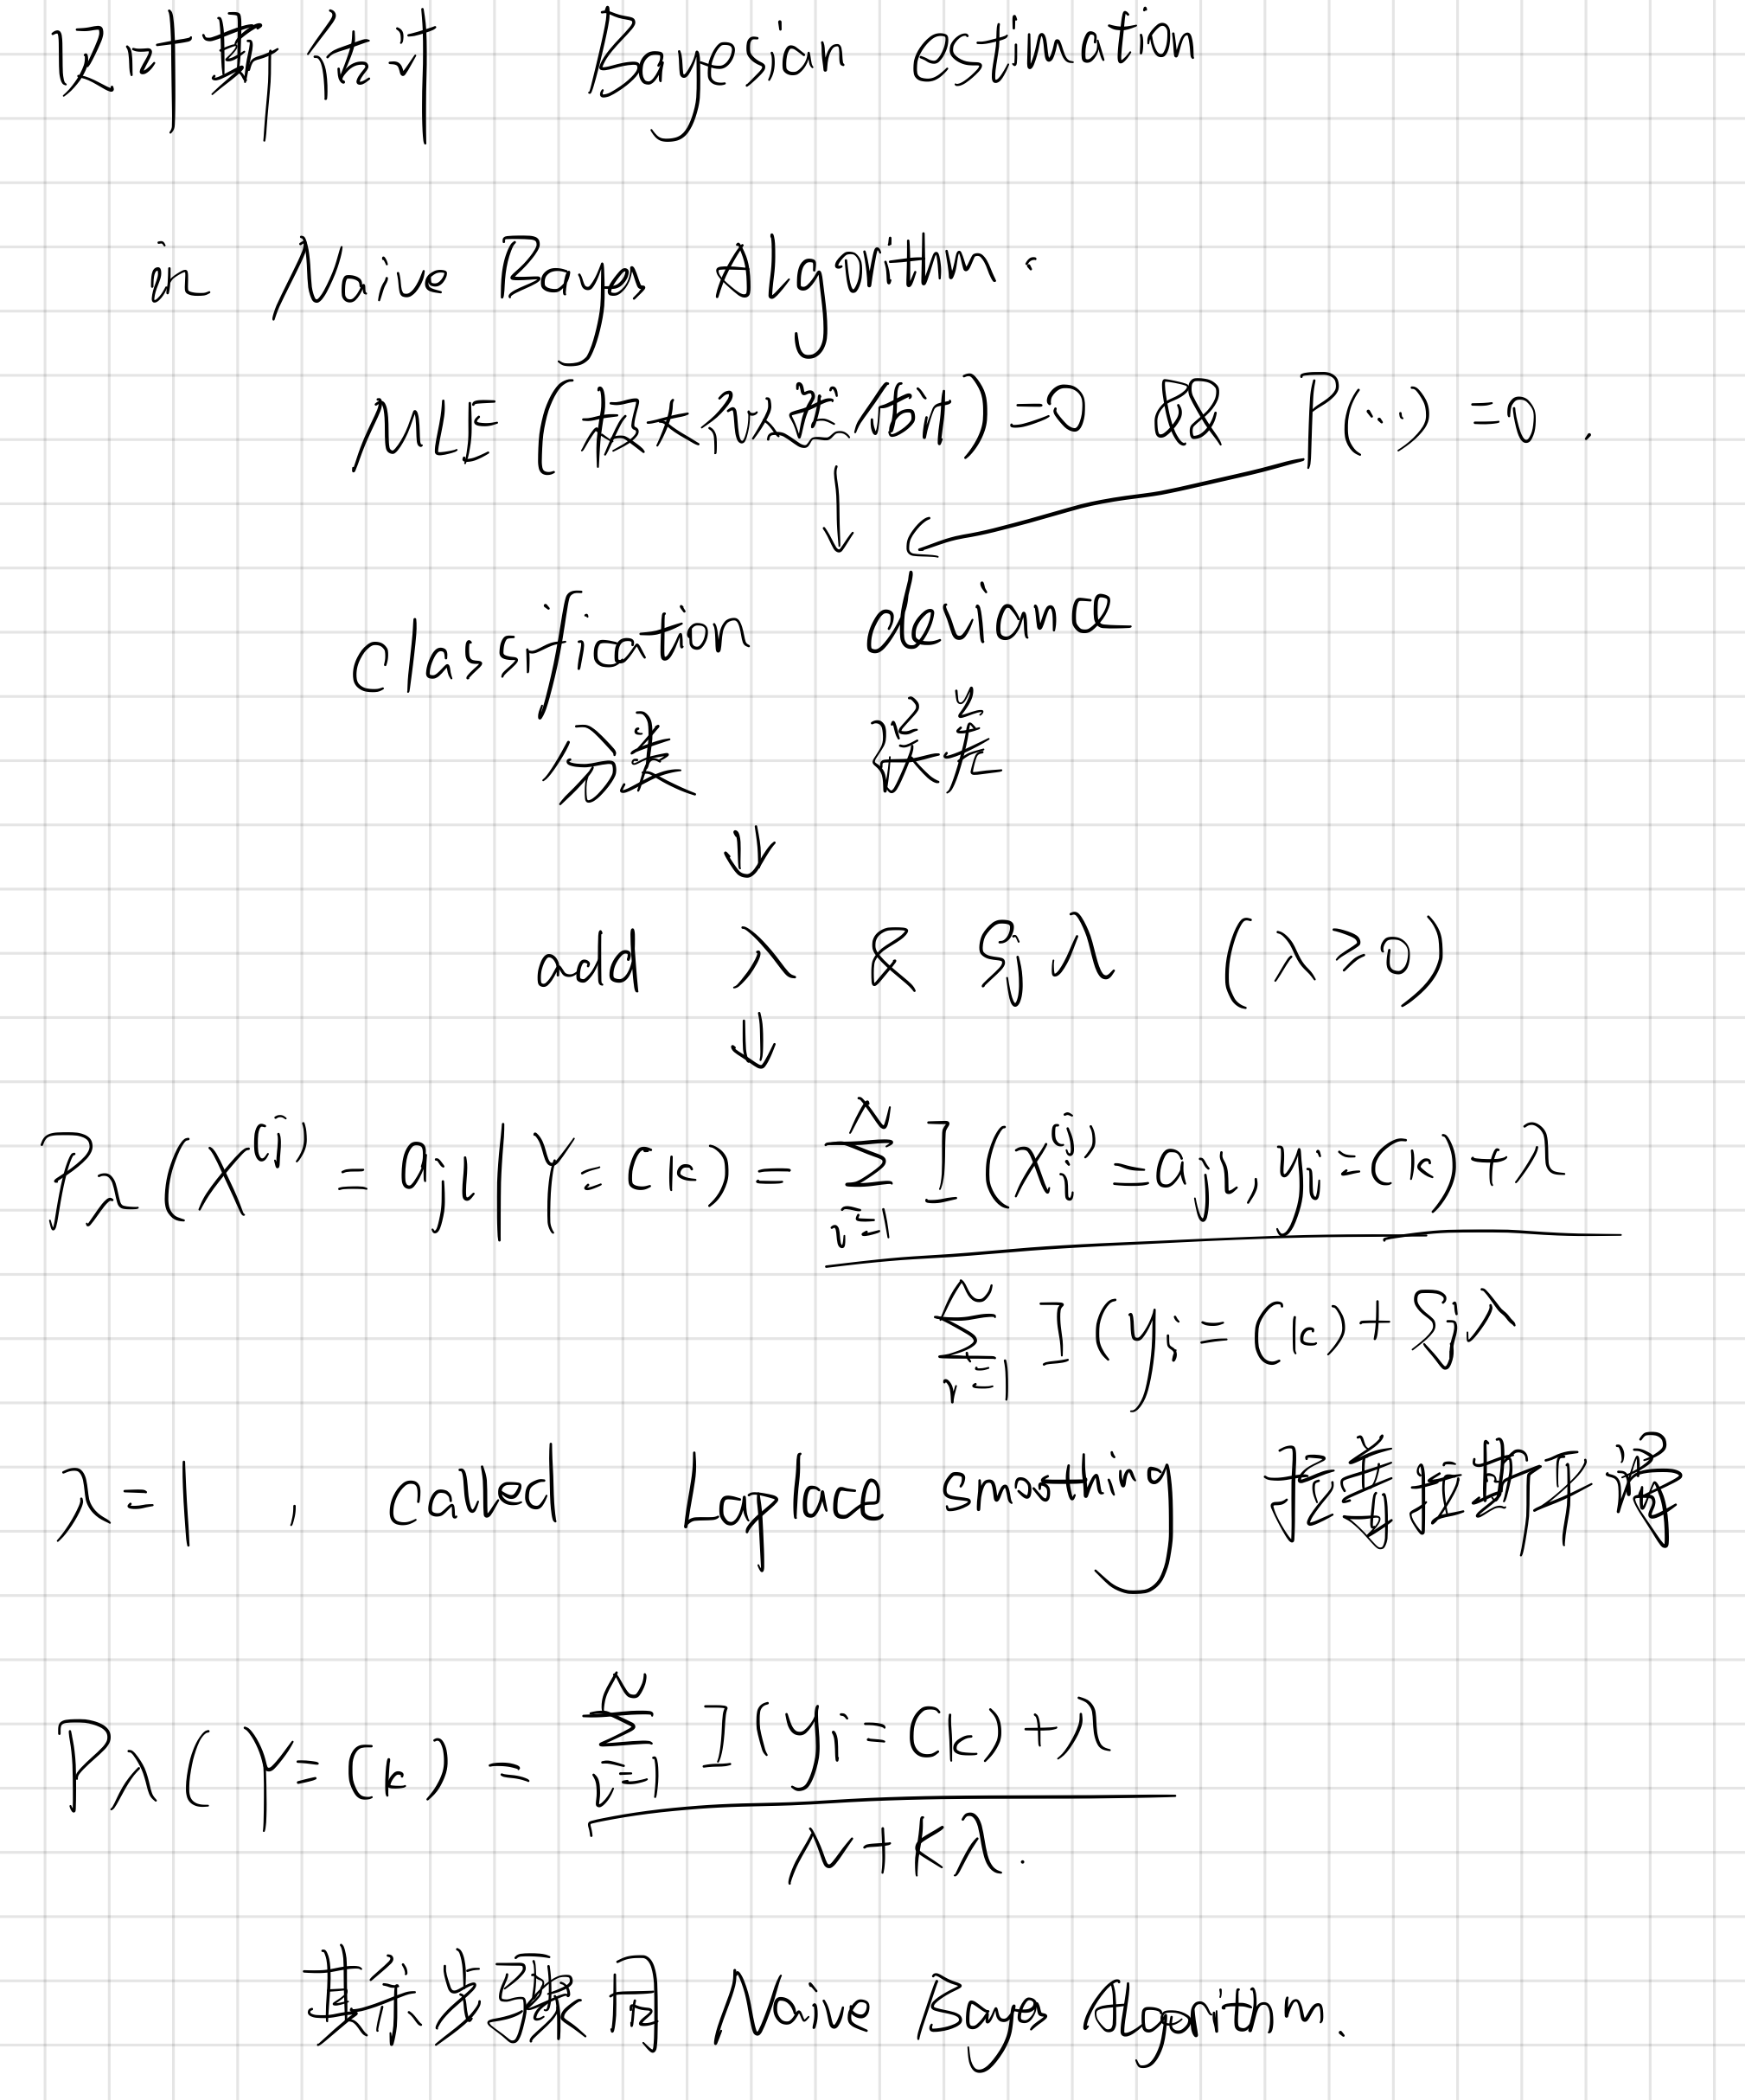 贝叶斯估计 Bayesian estimation
in Naive Bayes Algorithm.
MLE (极大似然估计) =0 && P(...) =0.
classification deviance
分类 误差
add λ & Sjλ (λ≥0)
Pλ(X^(j) = ajl | Y = Ck) = ∑_{i=1}^{N} I(xi^(j) = ajl, yi = Ck) + λ
∑_{i=1}^{N} I(yi = Ck) + Sjλ
λ=1, called Laplace smoothing 拉普拉斯平滑
Pλ(Y = Ck) = ∑_{i=1}^{N} I(yi = Ck) + λ
N + Kλ.
其余步骤用 Naive Bayes Algorithm.